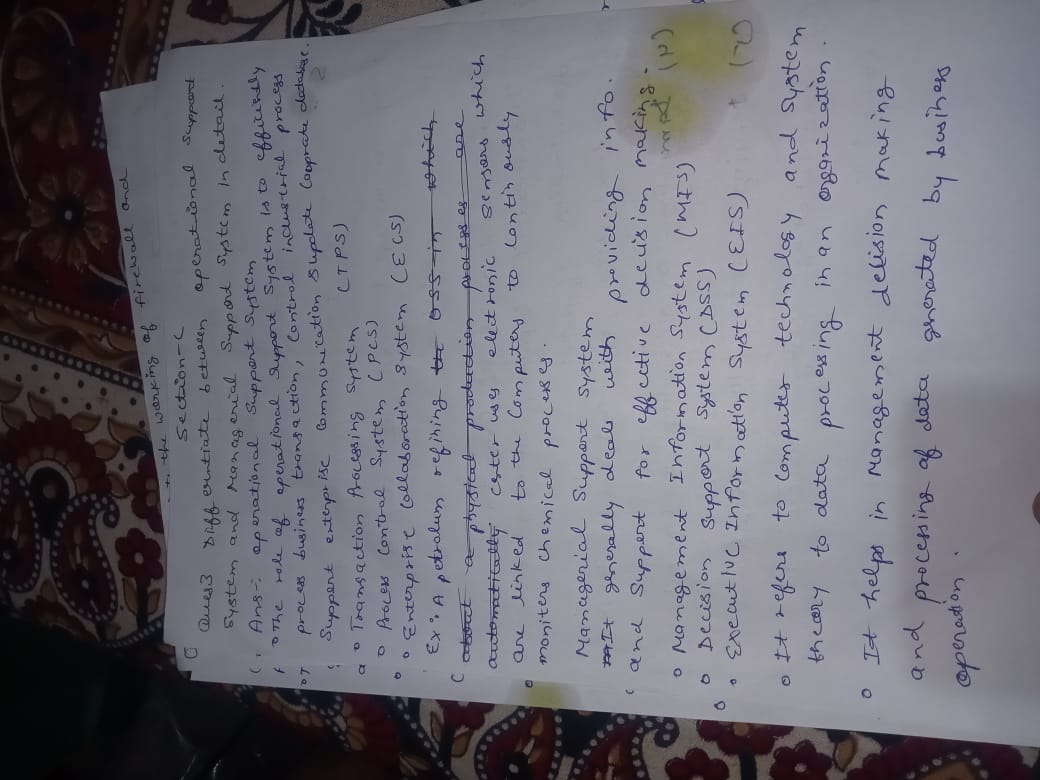 the working of firewall and
Section-C
Ques3 Differntiate between operational support
System and Managerial Support System in detail.
Ans-: operational Support System
o The role of operational Support System is to efficiently
process business transaction, Control industrial process
Support enterprise Communication & update Cooprate database.
o Transaction Processing System (TPS)
o Process Control System (PCS)
o Enterprise Collaboration System (ECS)
Ex: A petrolum refining the OSS in which
about a physical production processes are
automatically center uses electronic sensors which
are linked to the Computers to Continously
moniters chemical processes.
Managerial Support System
It generally deals with providing info.
and Support for effective decision making.
o Management Information System (MIS)
o Decision Support System (DSS)
o Executive Information System (EIS)
o It refers to Computer technology and System
theory to data processing in an organization.
o It helps in Management decision making
and processing of data generated by business
operation.